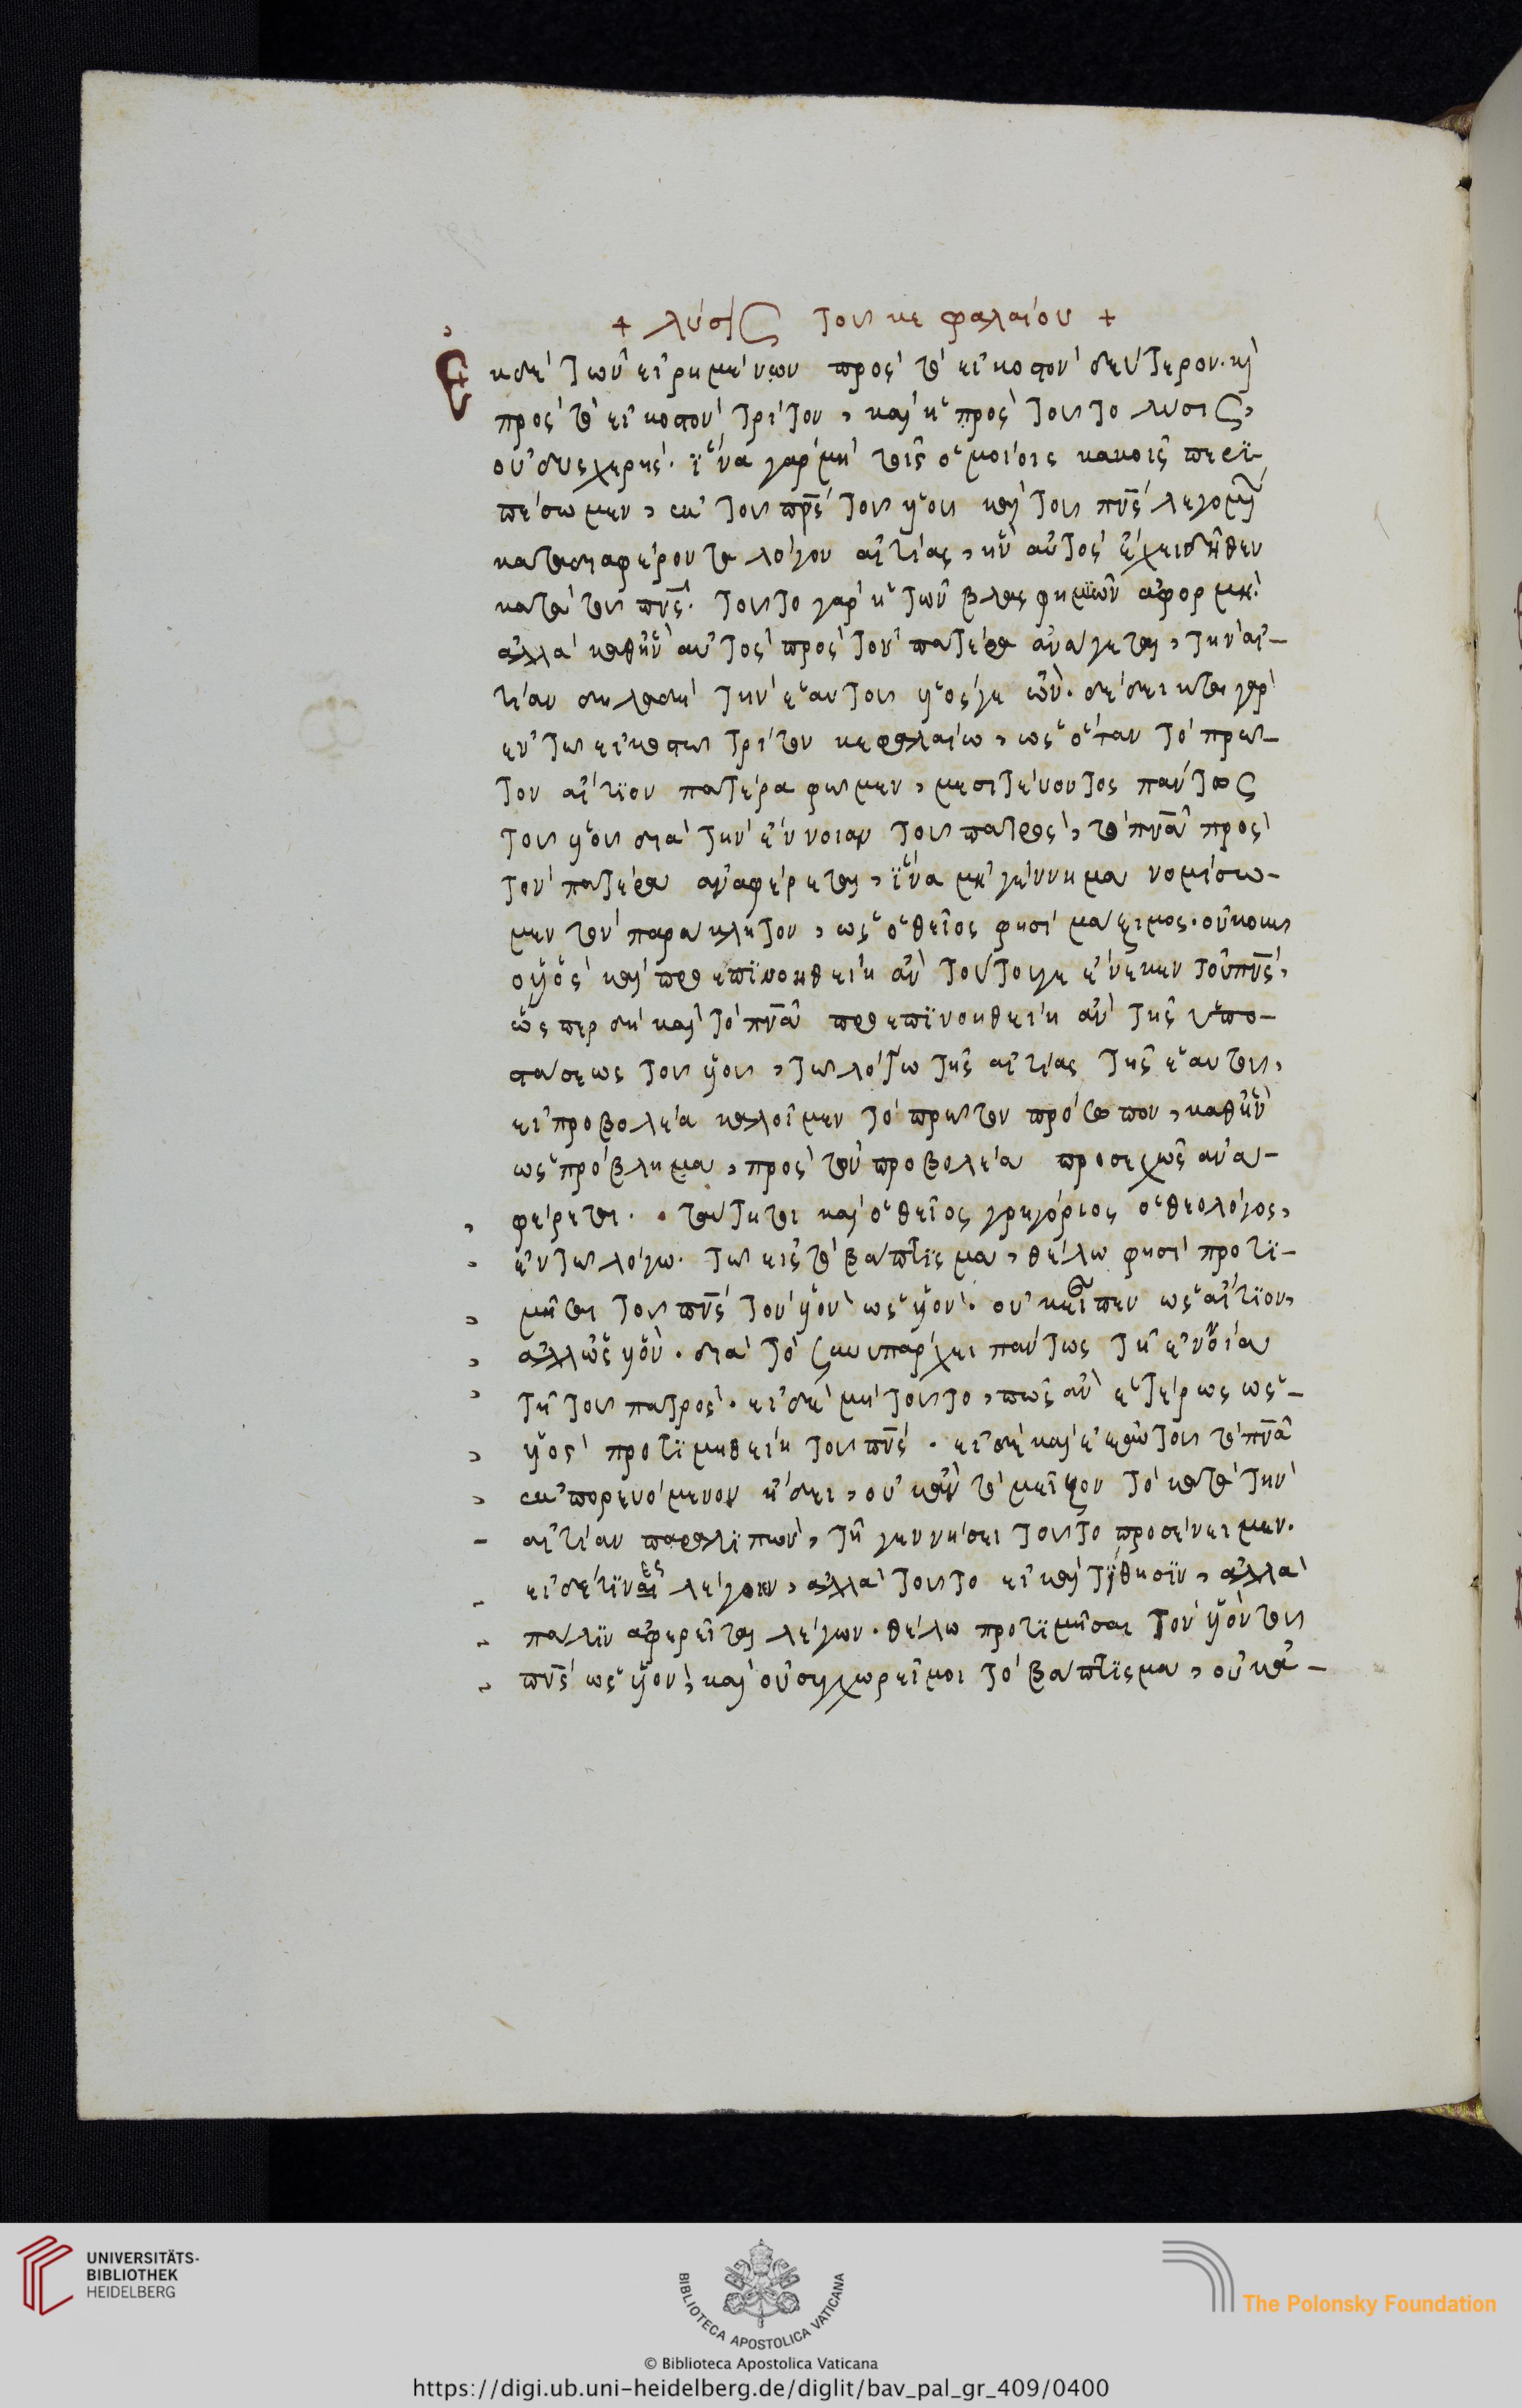 + λύσις τοῦ κε φαλαίου +
Ἐκ δὲ τῶν εἰρημένων πρὸς τὸ εἰκοστὸν δεύτερον. κὶ
πρὸς τὸ εἰκοστὸν τρίτον, καὶ ἡ πρὸς τοῦτο λύσις,
οὐ δυσχερής. ἵνα γὰρ μὴ τοῖς ὁμοίοις κακοῖς περι-
πέσωμεν, ἐκ τοῦ πρς τοῦ υἱοῦ καὶ τοῦ πνς λεγομεν
κατα διαφέροντα λόγον αἰτίας, ἣν αὐτὸς ἔχει δῆθεν
κατὰ τοῦ πνς. τοῦτο γὰρ ἡ τῶν βλασφημιῶν ἀφορμή.
ἀλλὰ καθ' ἣν αὐτὸς πρὸς τὸν πατέρα ἀνάγεται, τὴν αἰ-
τίαν δηλαδὴ τὴν ἑαυτοῦ υἱός γε ὤν. δέδεικται γὰρ
ἐν τῶ εἰκοστῶ τρίτον κεφαλαίω, ὡς ὅταν τὸ πρῶ-
τον αἴτιον πατέρα φῶμεν, μεσιτεύοντος πάντως
τοῦ υἱοῦ διὰ τὴν ἔννοιαν τοῦ πατρὸς, τὸ πνα πρὸς
τὸν πατέρα ἀναφέρεται, ἵνα μὴ γέννημα νομίσω-
μεν τὸν παράκλητον, ὡς ὁ θεῖος φησὶ μάξιμος. οὐκοῦν
ὁ υἱὸς καὶ προεπινοηθείη ἂν τούτου γε ἕνεκεν τοῦ πνς,
ὥσπερ δὴ καὶ τὸ πνα προεπινοηθείη ἂν τῆς ὑπο-
στάσεως τοῦ υἱοῦ, τῶ λόγω τῆς αἰτίας τῆς ἑαυτοῦ,
εἰ προβολέα καλοῖμεν τὸ πρῶτον πρόσωπον, καθ' ἣν
ὡς πρόβλημα, πρὸς τὸν προβολέα προσεχῶς ἀνα-
φέρεται. ταύτητοι καὶ ὁ θεῖος γρηγόριος ὁ θεολόγος,
ἐν τῶ λόγω. τῶ εἰς τὸ βάπτισμα, θέλω φησὶ προτι-
μᾶται τοῦ πνς τὸν υἱὸν ὡς υἱόν. οὐκ εἶπεν ὡς αἴτιον,
ἀλλ' ὡς υἱὸν. διὰ τὸ συνυπάρχει πάντως τῆ ἐννοία
τῆ τοῦ πατρός. εἰ δὲ μὴ τοῦτο, πῶς ἂν ἑτέρως ὡς
υἱὸς προτιμηθείη τοῦ πνς. εἰ δὲ καὶ ἐξ αὐτοῦ τὸ πνα
ἐκπορευόμενον ἤδει, οὐκ ἂν τὸ μεῖζον τὸ κατὰ τὴν
αἰτίαν παραλιπὼν, τῆ γεννήσει τοῦτο προσένειμεν.
λέγοιεν, ἀλλὰ τοῦτο εἰ καὶ τίθησιν, ἀλλὰ
πάλιν ἀφερεῖται λέγων. θέλω προτιμῆσαι τὸν υἱὸν τοῦ
πνς ὡς υἱὸν; καὶ οὐ συγχωρεῖ μοι τὸ βάπτισμα, οὐκ
UNIVERSITÄTS-
BIBLIOTHEK
HEIDELBERG
BIBLIOTECA APOSTOLICA VATICANA
The Polonsky Foundation
© Biblioteca Apostolica Vaticana
https://digi.ub.uni-heidelberg.de/diglit/bav_pal_gr_409/0400